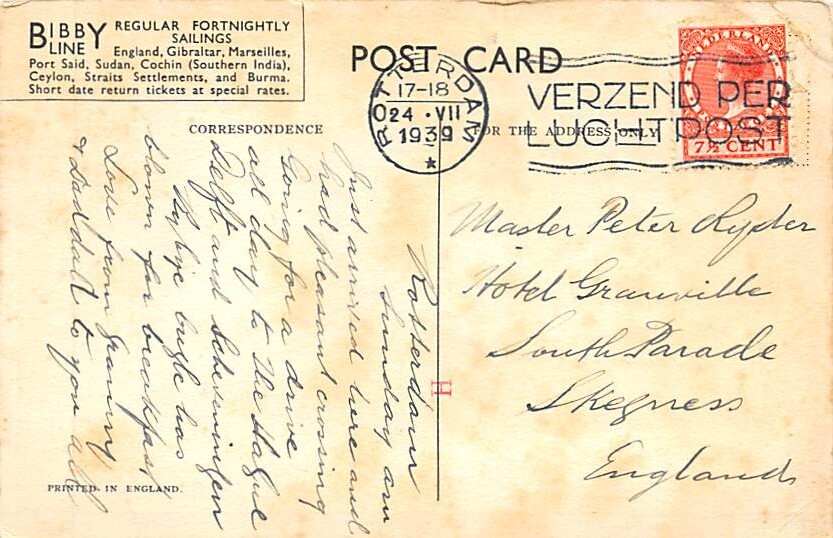 BIBBY LINE
REGULAR FORTNIGHTLY
SAILINGS
England, Gibraltar, Marseilles,
Port Said, Sudan, Cochin (Southern India),
Ceylon, Straits Settlements, and Burma.
Short date return tickets at special rates.
POST CARD
CORRESPONDENCE
FOR THE ADDRESS ONLY
ROTTERDAM
17-18
24 · VII
1939
VERZEND PER
LUCHTPOST
NEDERLAND
7½ CENT
Rotterdam
Sunday am
Just arrived here and
had pleasant crossing
Going for a drive
all day to The Hague
Delft and Scheveningen
Bye bye bugle has
blown for breakfast
Love from Granny
& Daddah to you all
Master Peter Ryder
Hotel Granville
South Parade
Skegness
England
H
PRINTED IN ENGLAND.